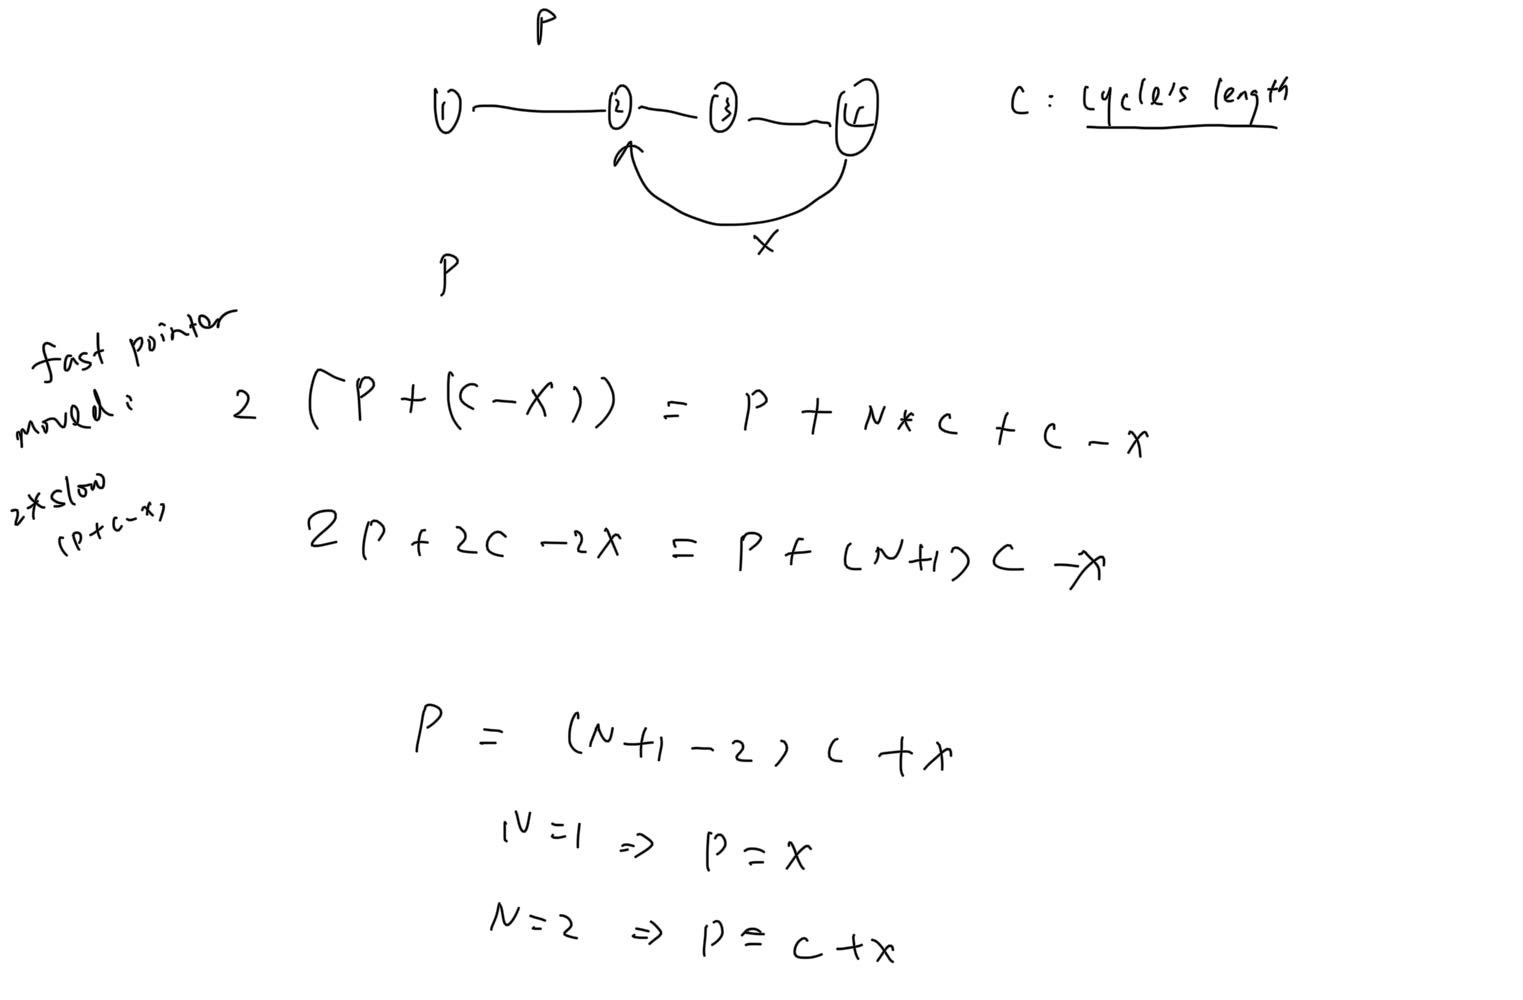 P
1 2 3 4
C : cycle's length
X
P
fast pointer
moved:
2 (P + (C - X)) = P + N * C + C - X
2*slow
(P + C - X)
2P + 2C - 2X = P + (N+1) C - X
P = (N+1 - 2) C + X
N = 1 => P = X
N = 2 => P = C + X